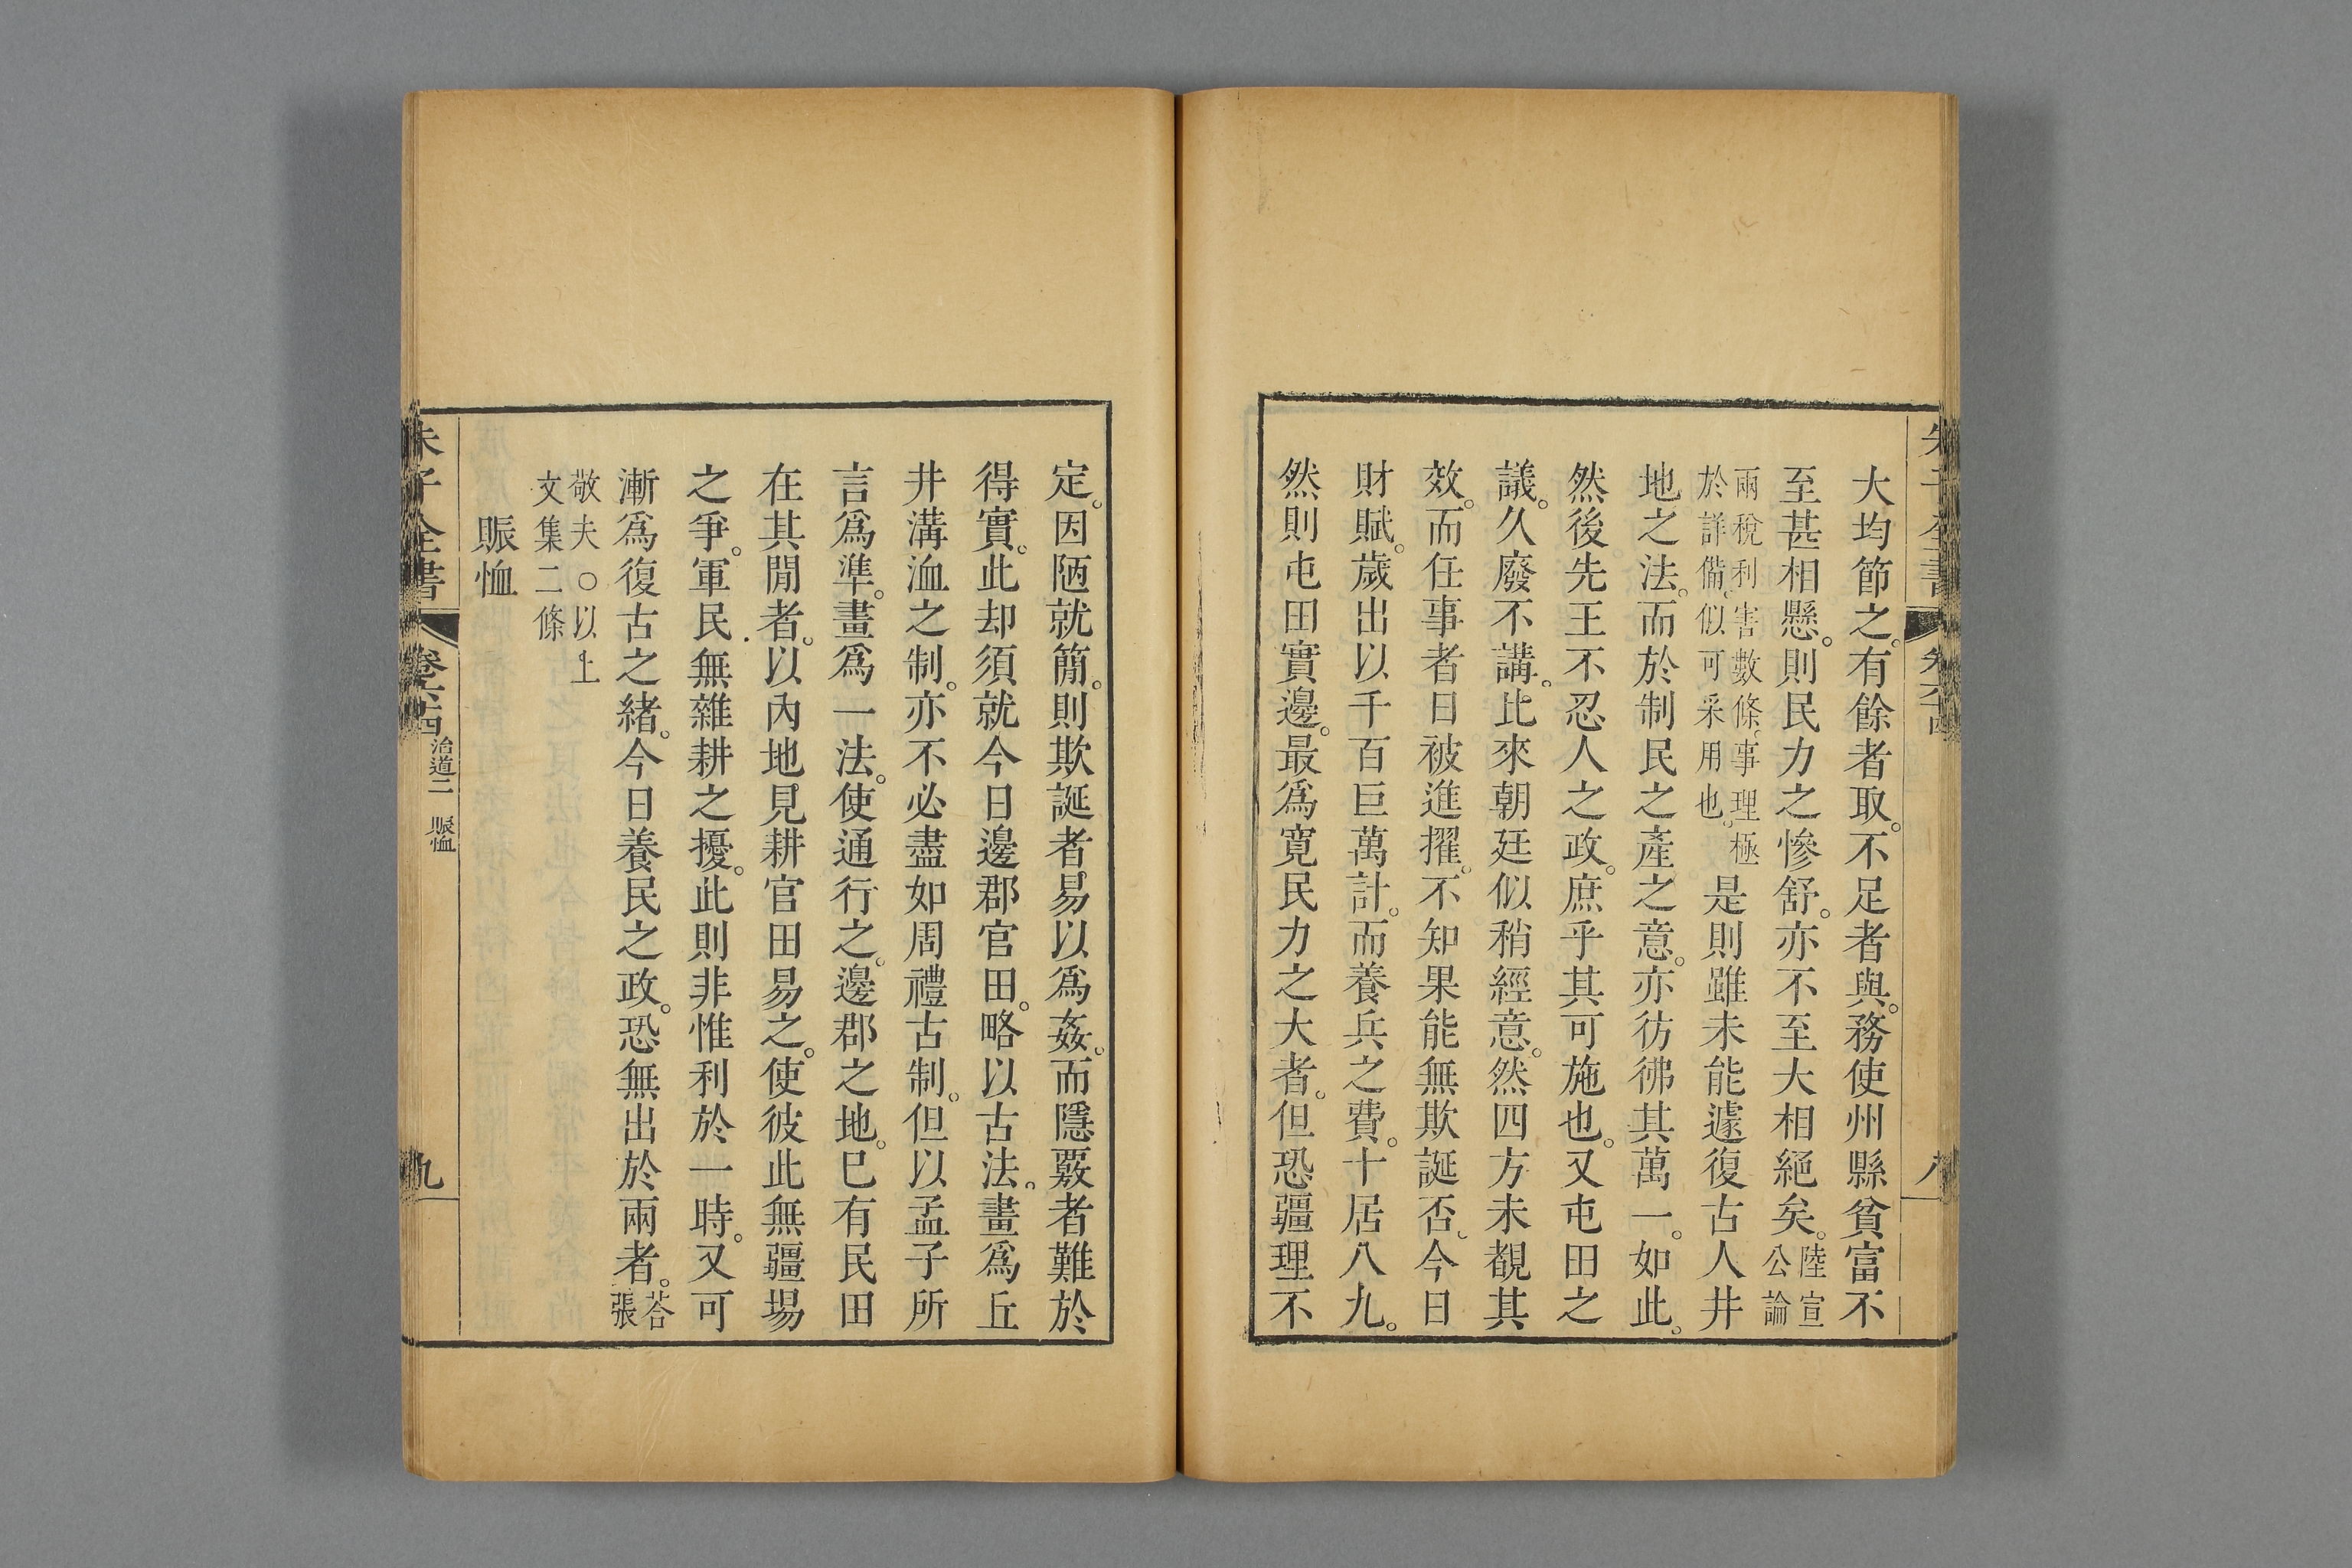 大均節之。有餘者取。不足者與。務使州縣貧富不
至甚相懸。則民力之慘舒。亦不至大相絕矣。陸宣公論
兩稅利害數條。事理極於詳備。似可采用也。是則雖未能遽復古人井
地之法。而於制民之產之意。亦彷彿其萬一。如此。
然後先王不忍人之政。庶乎其可施也。又屯田之
議。久廢不講。比來朝廷似稍經意。然四方未覩其
效。而任事者日被進擢。不知果能無欺誕否。今日
財賦。歲出以千百巨萬計。而養兵之費。十居八九。
然則屯田實邊。最爲寬民力之大者。但恐疆理不
定。因陋就簡。則欺誕者易以爲姦。而隱覈者難於
得實。此却須就今日邊郡官田。略以古法。畫爲丘
井溝洫之制。亦不必盡如周禮古制。但以孟子所
言爲準。畫爲一法。使通行之。邊郡之地。已有民田
在其閒者。以內地見耕官田易之。使彼此無疆埸
之爭。軍民無雜耕之擾。此則非惟利於一時。又可
漸爲復古之緒。今日養民之政。恐無出於兩者。荅張
敬夫○以上
文集二條
賑恤
朱子全書
卷六十四
治道二 賑恤
九